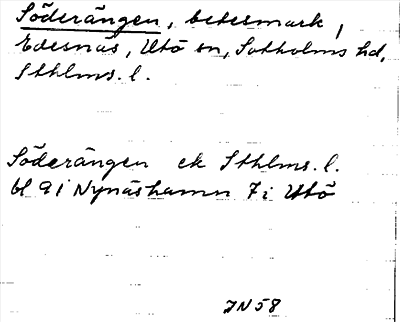 Söderängen, betesmark,
Edesnäs, Utö sn, Sotholms hd,
Sthlms. l.
Söderängen ek Sthlms. l.
bl 9 i Nynäshamn 7 i Utö
JN 58